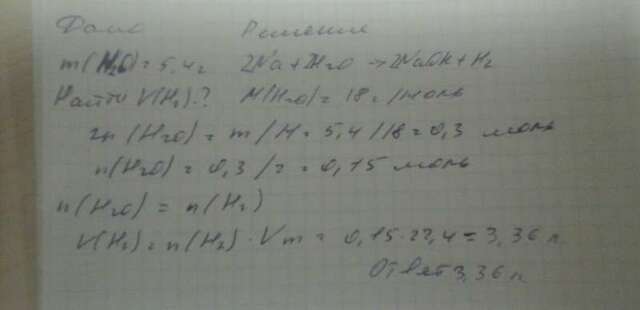 Дано Решение
m(H2O)=5,4г 2Na+2H2O → 2NaOH+H2
Найти V(H2)? M(H2O)=18г/моль
n(H2O)=m/M=5,4/18=0,3 моль
n(H2O)=0,3/2=0,15 моль
n(H2O)=n(H2)
V(H2)=n(H2)·Vm=0,15·22,4=3,36 л.
Ответ 3,36 л